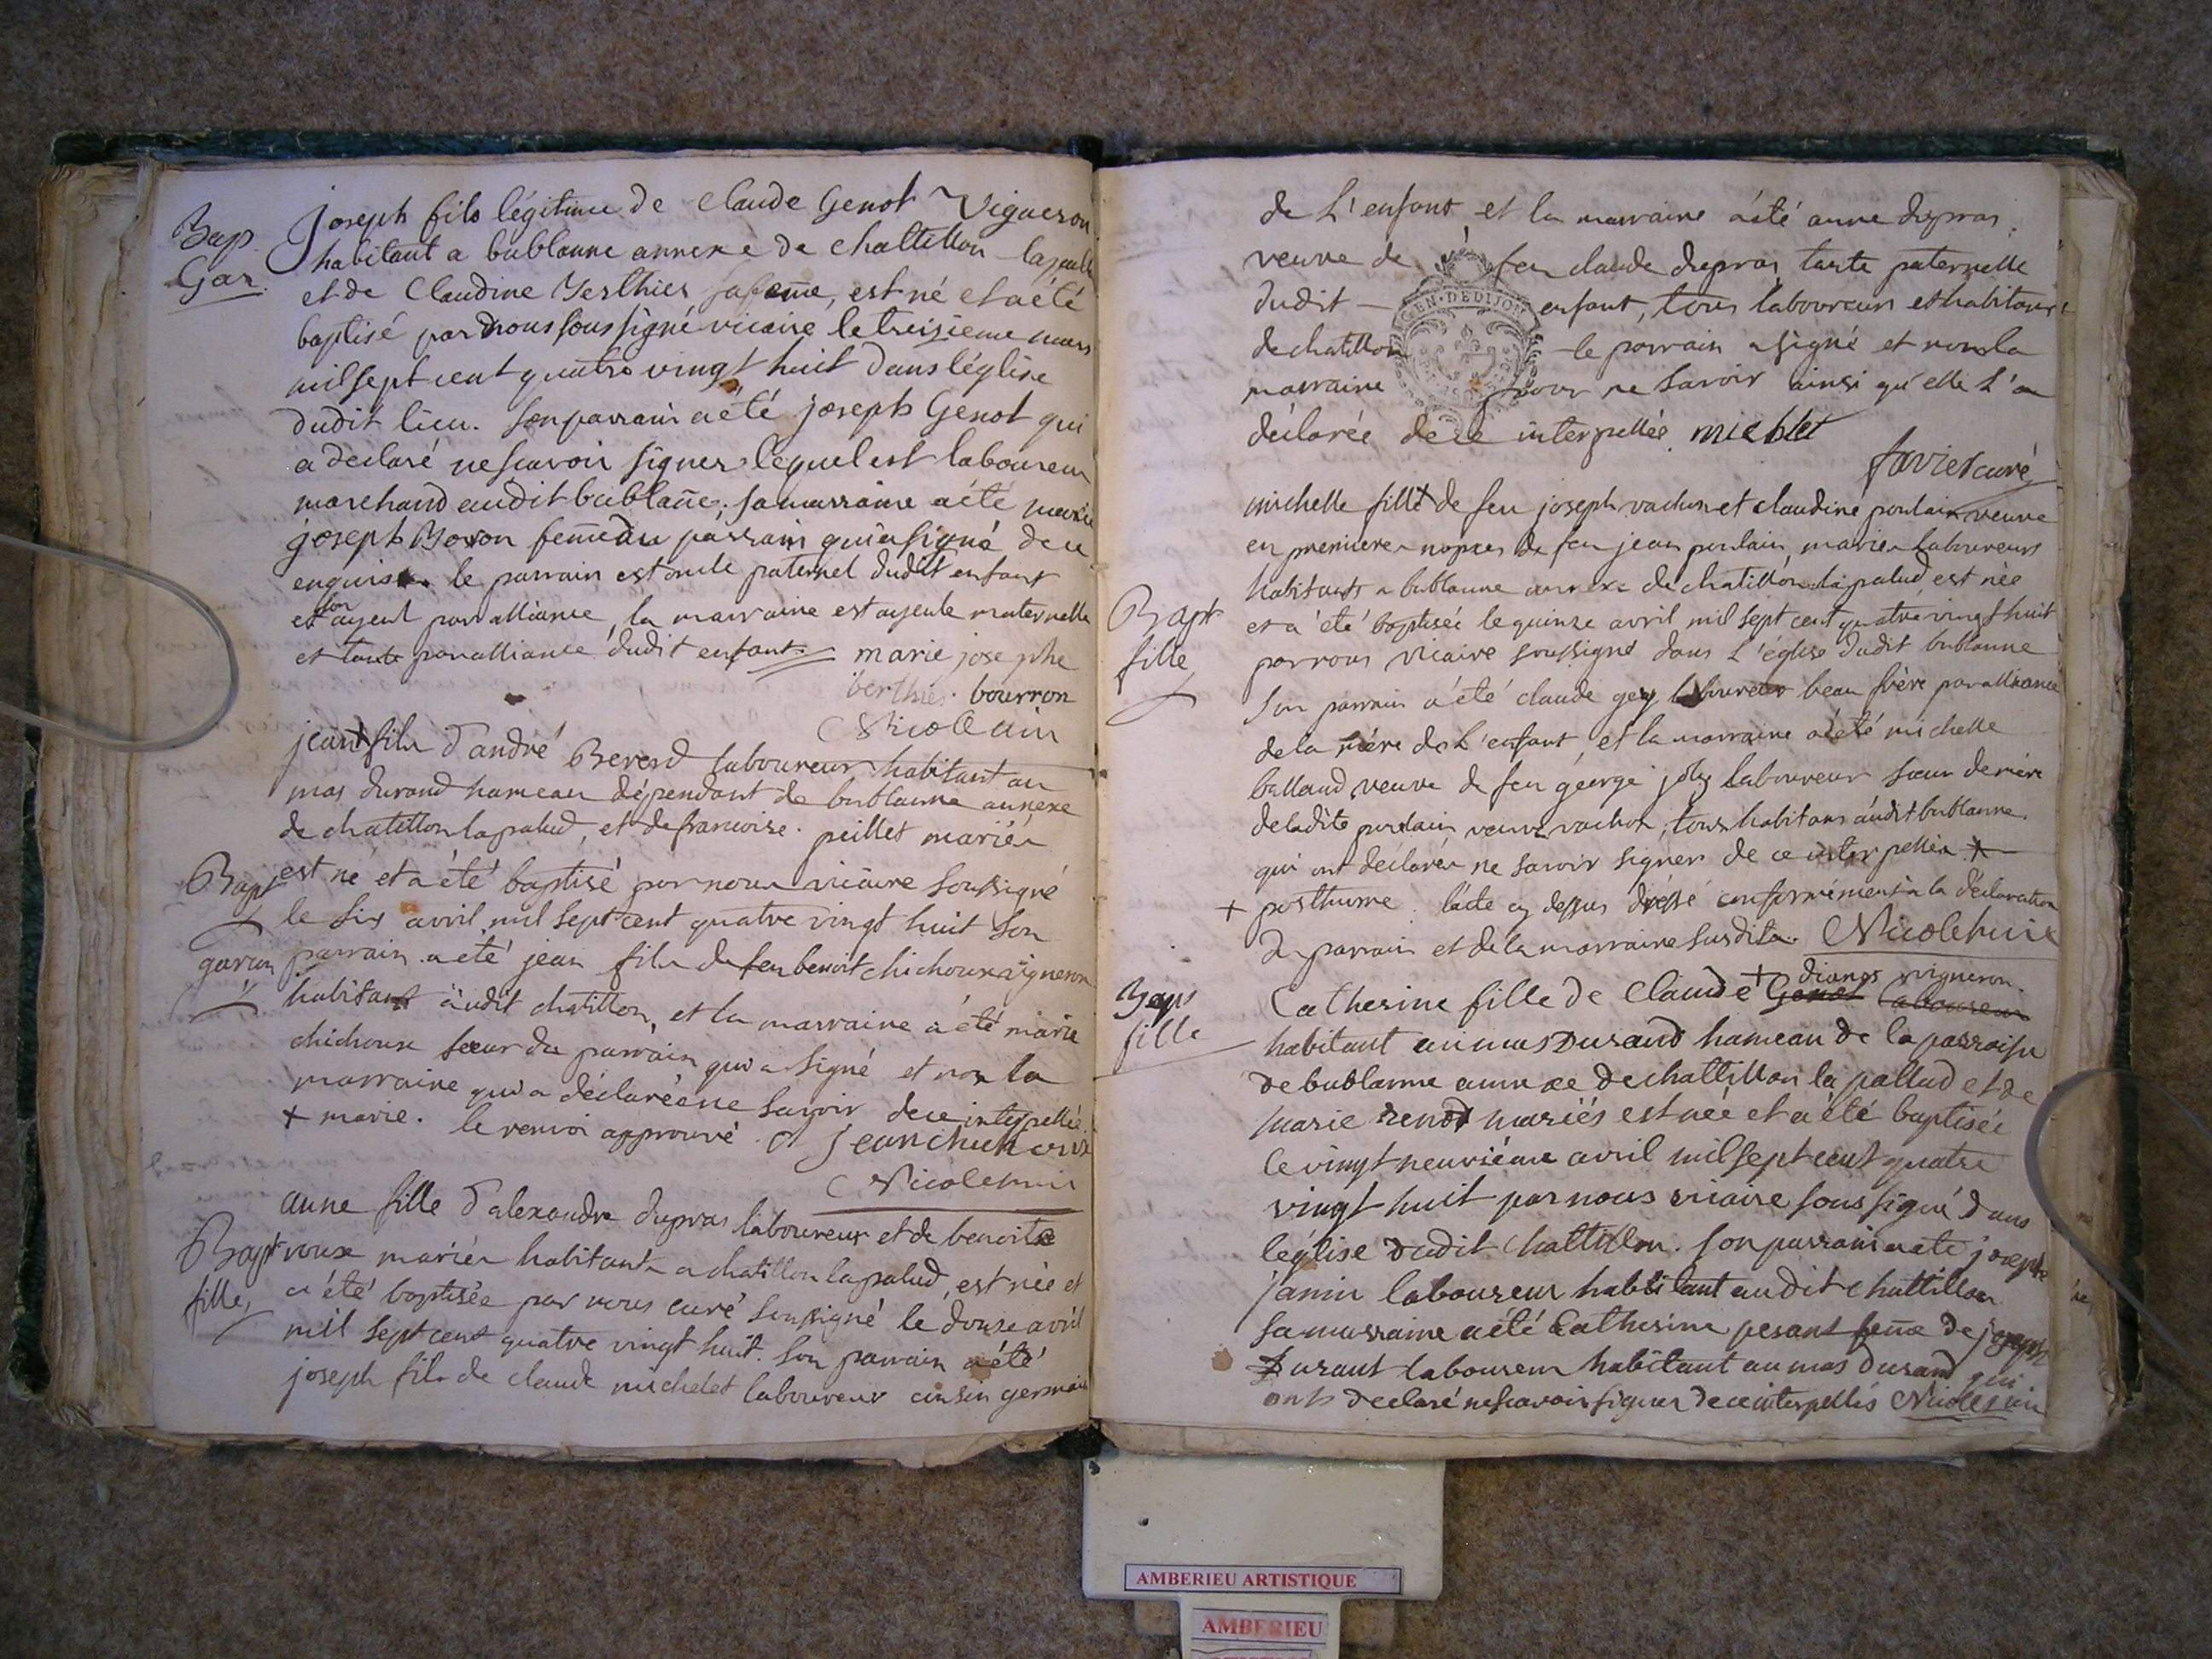 Bap.
Gar.
Joseph fils légitime de Claude Genot Vigneron
habitant a bublanne annexe de chattillon lapalu
et de Claudine Berthier sa feme, est né et a été
baptisé par nous sous signé vicaire le treisieme mars
mil sept cent quatre vingt huit dans léglise
dudit lieu. son parrain a été joseph Genot qui
a declaré ne scavoir signer lequel est laboureur
marchand audit bublane; sa marraine a été marie
joseph feme du parrain qui a signé de ce
enquis le parrain est oncle paternel dudit enfant
et son ayeul par alliance, la marraine est ayeule maternelle
et tante par alliance dudit enfant. marie josephe
berthier bourron
Nicollemin
jean + fils d'andré Bererd laboureur habitant au
mas durand hameau dépendant de bublanne annexe
de chatillon lapalud, et de francoise peillet mariés
Bapt
garcon
est né et a été baptisé par nous vicaire soussigné
le six avril mil sept cent quatre vingt huit son
parrain a été jean fils de feu benoit chichoux vigneron
habitant audit chatillon, et la marraine a été marie
chichoux soeur du parrain qui a signé et non la
marraine qui a déclarée ne savoir de ce interpellée.
+ marie. le renvoi approuvé Jean chichoux
Nicolemin
Bapt
fille
anne fille d'alexandre dupras laboureur et de benoite
roux mariés habitants a chatillon lapalud, est née et
a été baptisée par nous curé soussigné le douze avril
mil sept cent quatre vingt huit. son parrain a été
joseph fils de claude michelet laboureur cousin germain
de L'enfant et la marraine a été anne dupras
veuve de feu claude dupras tante paternelle
dudit enfant, tous laboureurs et habitants
GEN. DE DIJON
de chatillon le parrain a signé et non la
marraine pour ne savoir ainsi qu'elle L'a
déclarée de ce interpellée michlet
favier curé
Bapt
fille
michelle fille + de feu joseph vachon et claudine poulain veuve
en premieres nopces de feu jean poulain mariés laboureurs
habitants a bublanne annexe de chatillon lapalud est née
et a été baptisée le quinze avril mil sept cent quatre vingt huit
par nous vicaire soussigné dans L'église dudit bublanne
son parrain a été claude gey laboureur beau frère par alliance
de la mère de L'enfant et la marraine a été michelle
balland veuve de feu george joly laboureur soeur de mère
de ladite poulain veuve vachon, tous habitans audit bublanne
qui ont déclarés ne savoir signer de ce interpellés +
+ posthume. l'acte cy dessus dressé conformément a la déclaration
du parrain et de la marraine susdits. Nicolemin
Bap
fille
Catherine fille de Claude + Genot laboureur
vigneron.
habitant au mas Durand hameau de la parroisse
de bublanne annexe de chattillon la pallud et de
marie renod mariés est née et a été baptisée
le vingt neuviéme avril mil sept cent quatre
vingt huit par nous vicaire sous signé dans
léglise dudit chattillon. son parrain a été joseph
janin laboureur habitant audit chattillon
sa marraine a été Catherine pesant feme de joseph
Durant laboureur habitant au mas durand qui
onts declaré ne scavoir signer de ce interpellés Nicolemin
AMBERIEU ARTISTIQUE
AMBERIEU